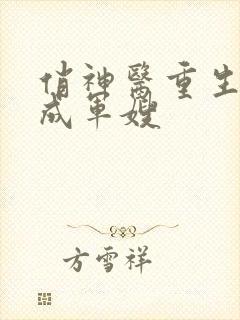 俏神醫重生
成軍嫂
方雪祥